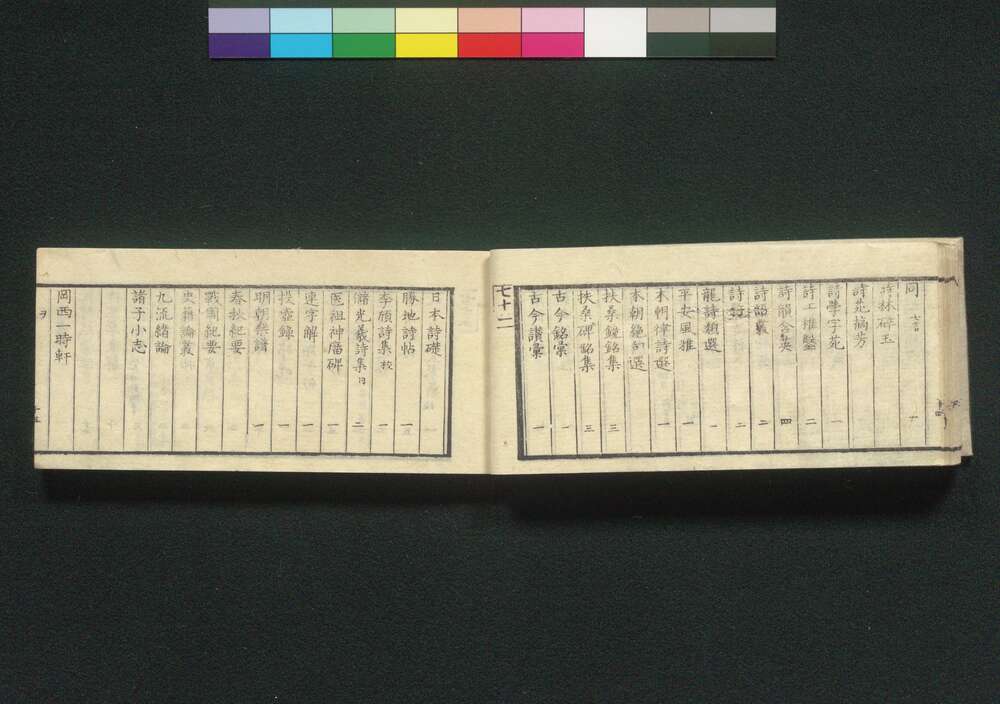 同
詩林碎玉
詩苑摘芳
詩學字苑 一
詩工推鑿 二
詩韻含英 四
詩語叢 二
龍詩類選 一
平安風雅 一
本朝律詩選 一
本朝絶句選
扶桑鐘銘集 三
扶桑碑銘集 三
古今銘彙 一
古今讃彙 一
七十二
日本詩礎
勝地詩帖 一
李頎詩集 校 一
儲光羲詩集 同 二
医祖神庿碑 一
連字解 一
投壺錄 一
明朝樂譜 一
春秋紀要
戰國紀要
史籍論義
九流緒論
諸子小志
岡西一時軒
ヲ